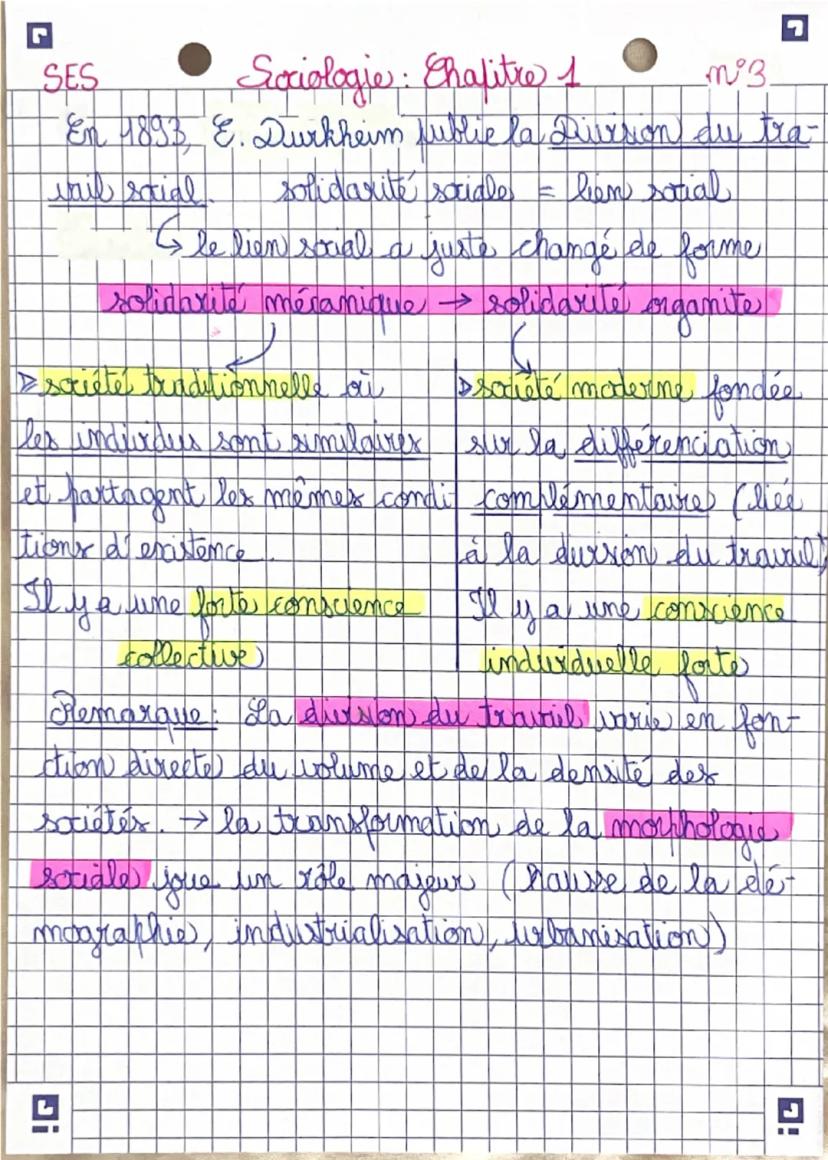 SES Sociologie : Chapitre 1 n°3
En 1893, E. Durkheim publie la Division du tra-
vail social. solidarité sociales = lien social
↳ le lien social a juste changé de forme
solidarité mécanique → solidarité organite
▷ société traditionnelle où
les individus sont similaires
et partagent les mêmes condi
tions d'existence.
Il y a une forte conscience
collective
▷ société moderne fondée
sur la différenciation
complémentaire (liée
à la division du travail)
Il y a une conscience
individuelle forte
Remarque : La division du travail varie en fon-
ction directe du volume et de la densité des
sociétés. → la transformation de la morphologie
sociale joue un rôle majeur (hausse de la dé-
mographie, industrialisation, urbanisation)